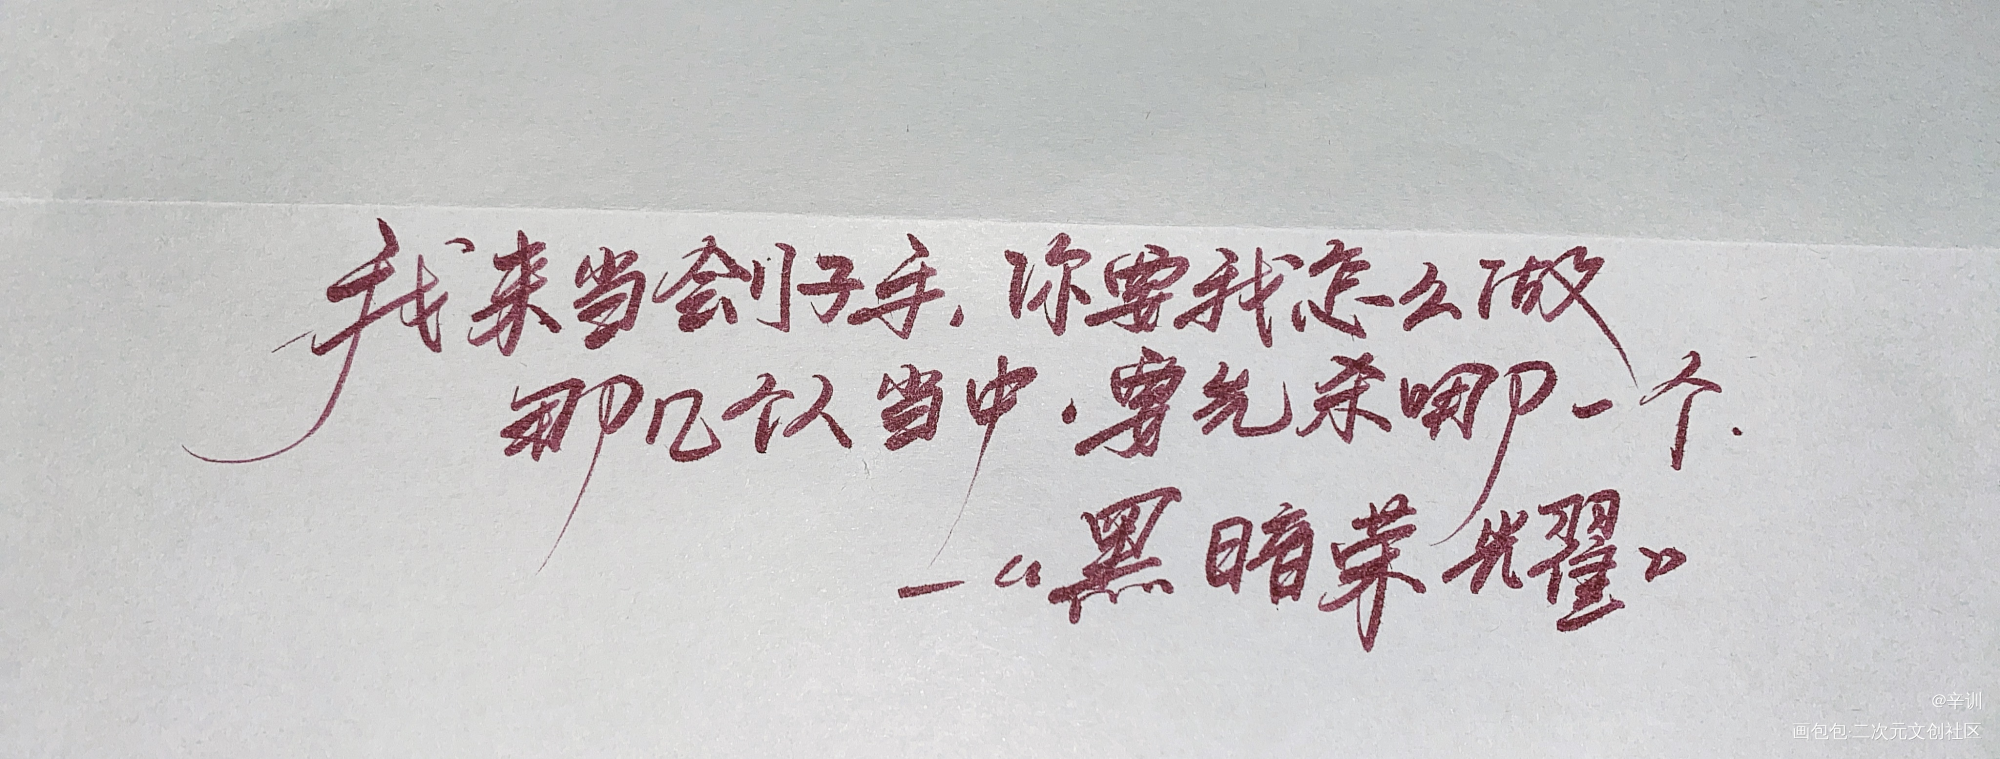 我来当刽子手，你要我怎么做
那几个人当中，要先杀哪一个.
—《黑暗荣耀》
@辛训
画包包·二次元文创社区